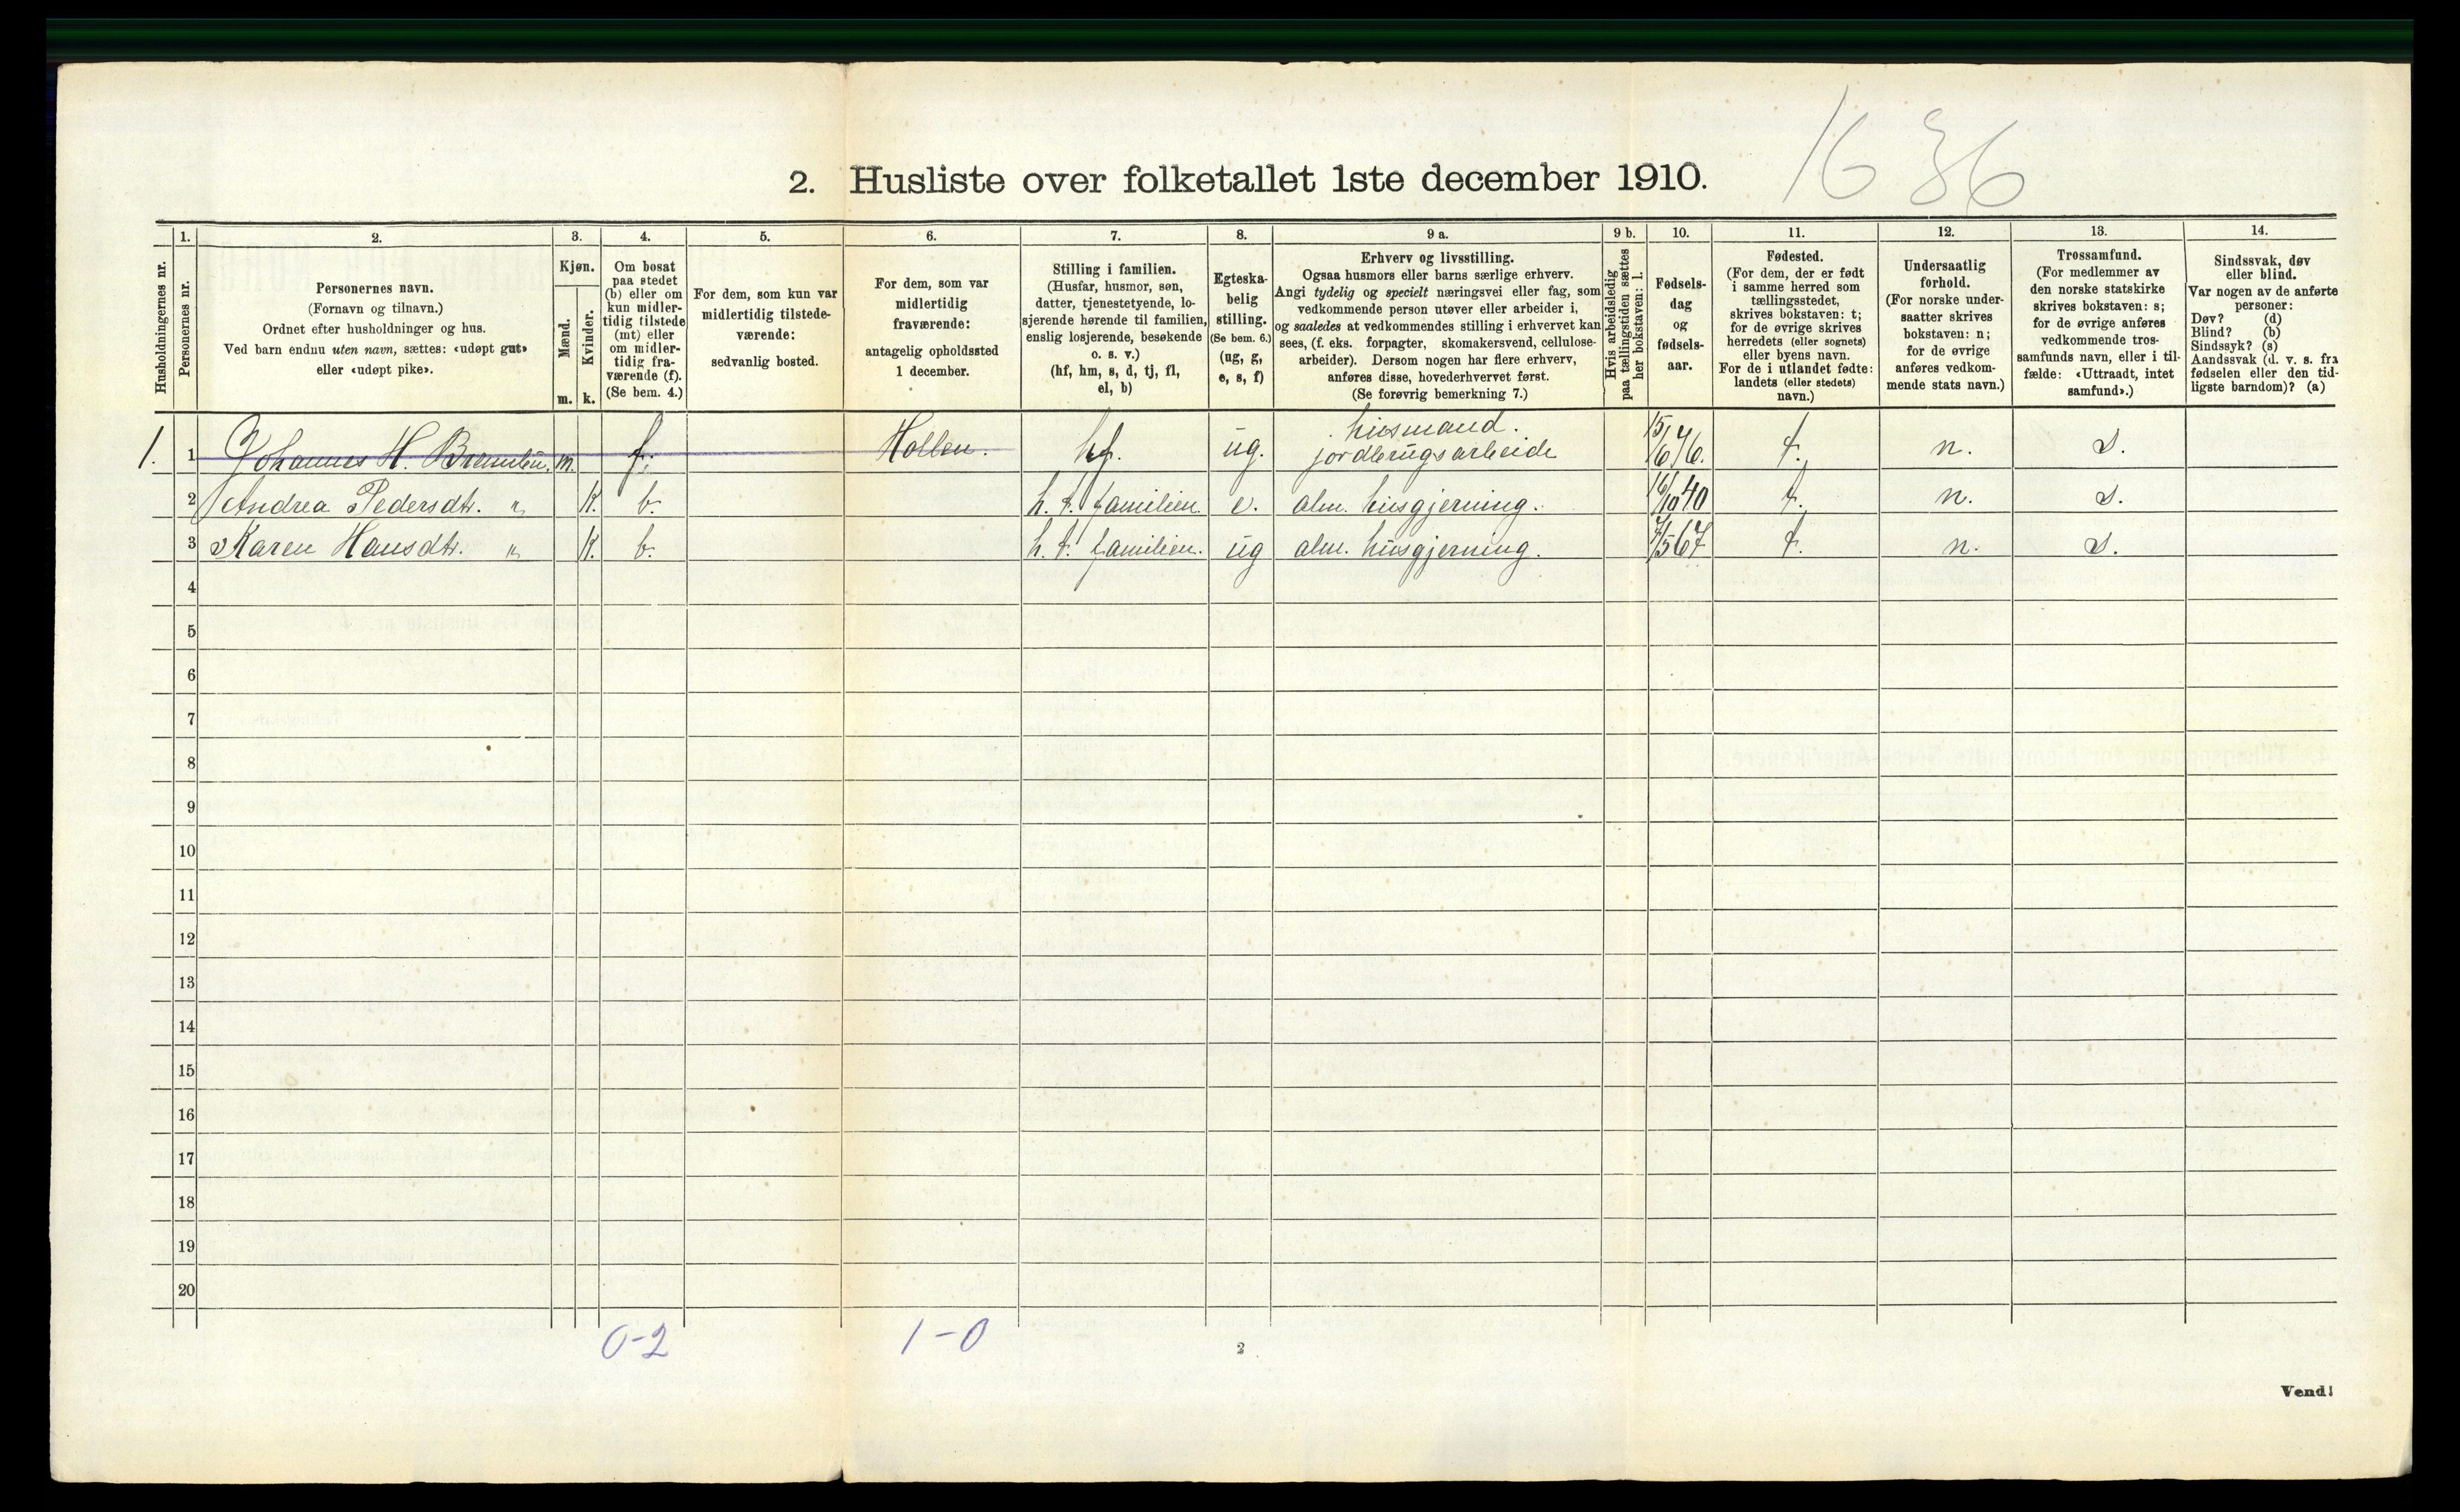 1636
2. Husliste over folketallet 1ste december 1910.
Husholdningernes nr.
1.
Personernes nr.
2.
Personernes navn.
(Fornavn og tilnavn.)
Ordnet efter husholdninger og hus.
Ved barn endnu uten navn, sættes: «udøpt gut»
eller «udøpt pike».
3.
Kjøn.
Mænd.
Kvinder.
m. k.
4.
Om bosat
paa stedet
(b) eller om
kun midler-
tidig tilstede
(mt) eller
om midler-
tidig fra-
værende (f).
(Se bem. 4.)
5.
For dem, som kun var
midlertidig tilstede-
værende:
sedvanlig bosted.
6.
For dem, som var
midlertidig
fraværende:
antagelig opholdssted
1 december.
7.
Stilling i familien.
(Husfar, husmor, søn,
datter, tjenestetyende, lo-
sjerende hørende til familien,
enslig losjerende, besøkende
o. s. v.)
(hf, hm, s, d, tj, fl,
el, b)
8.
Egteska-
belig
stilling.
(Se bem. 6.)
(ug, g,
e, s, f)
9 a.
Erhverv og livsstilling.
Ogsaa husmors eller barns særlige erhverv.
Angi tydelig og specielt næringsvei eller fag, som
vedkommende person utøver eller arbeider i,
og saaledes at vedkommendes stilling i erhvervet kan
sees, (f. eks. forpagter, skomakersvend, cellulose-
arbeider). Dersom nogen har flere erhverv,
anføres disse, hovederhvervet først.
(Se forøvrig bemerkning 7.)
9 b.
Hvis arbeidsledig
paa tællingstiden sættes
her bokstaven: l.
10.
Fødsels-
dag
og
fødsels-
aar.
11.
Fødested.
(For dem, der er født
i samme herred som
tællingsstedet,
skrives bokstaven: t;
for de øvrige skrives
herredets (eller sognets)
eller byens navn.
For de i utlandet fødte:
landets (eller stedets)
navn.)
12.
Undersaatlig
forhold.
(For norske under-
saatter skrives
bokstaven: n;
for de øvrige
anføres vedkom-
mende stats navn.)
13.
Trossamfund.
(For medlemmer av
den norske statskirke
skrives bokstaven: s;
for de øvrige anføres
vedkommende tros-
samfunds navn, eller i til-
fælde: «Uttraadt, intet
samfund».)
14.
Sindssvak, døv
eller blind.
Var nogen av de anførte
personer:
Døv? (d)
Blind? (b)
Sindssyk? (s)
Aandssvak (d. v. s. fra
fødselen eller den tid-
ligste barndom)? (a)
1. 1 Johannes H. m. f. Hollen. hf. ug. husmand. jordbrugsarbeide 15/6 76. t. n. s.
2 Andrea Pedersdtr. " K. b. h. t. familien. e. alm. husgjerning. 16/10 40 t. n. s.
3 Karen Hansdtr. " K. b. h. t. familien. ug alm. husgjerning. 7/5 67 t. n. s.
4
5
6
7
8
9
10
11
12
13
14
15
16
17
18
19
20
0-2 1-0
2
Vend!